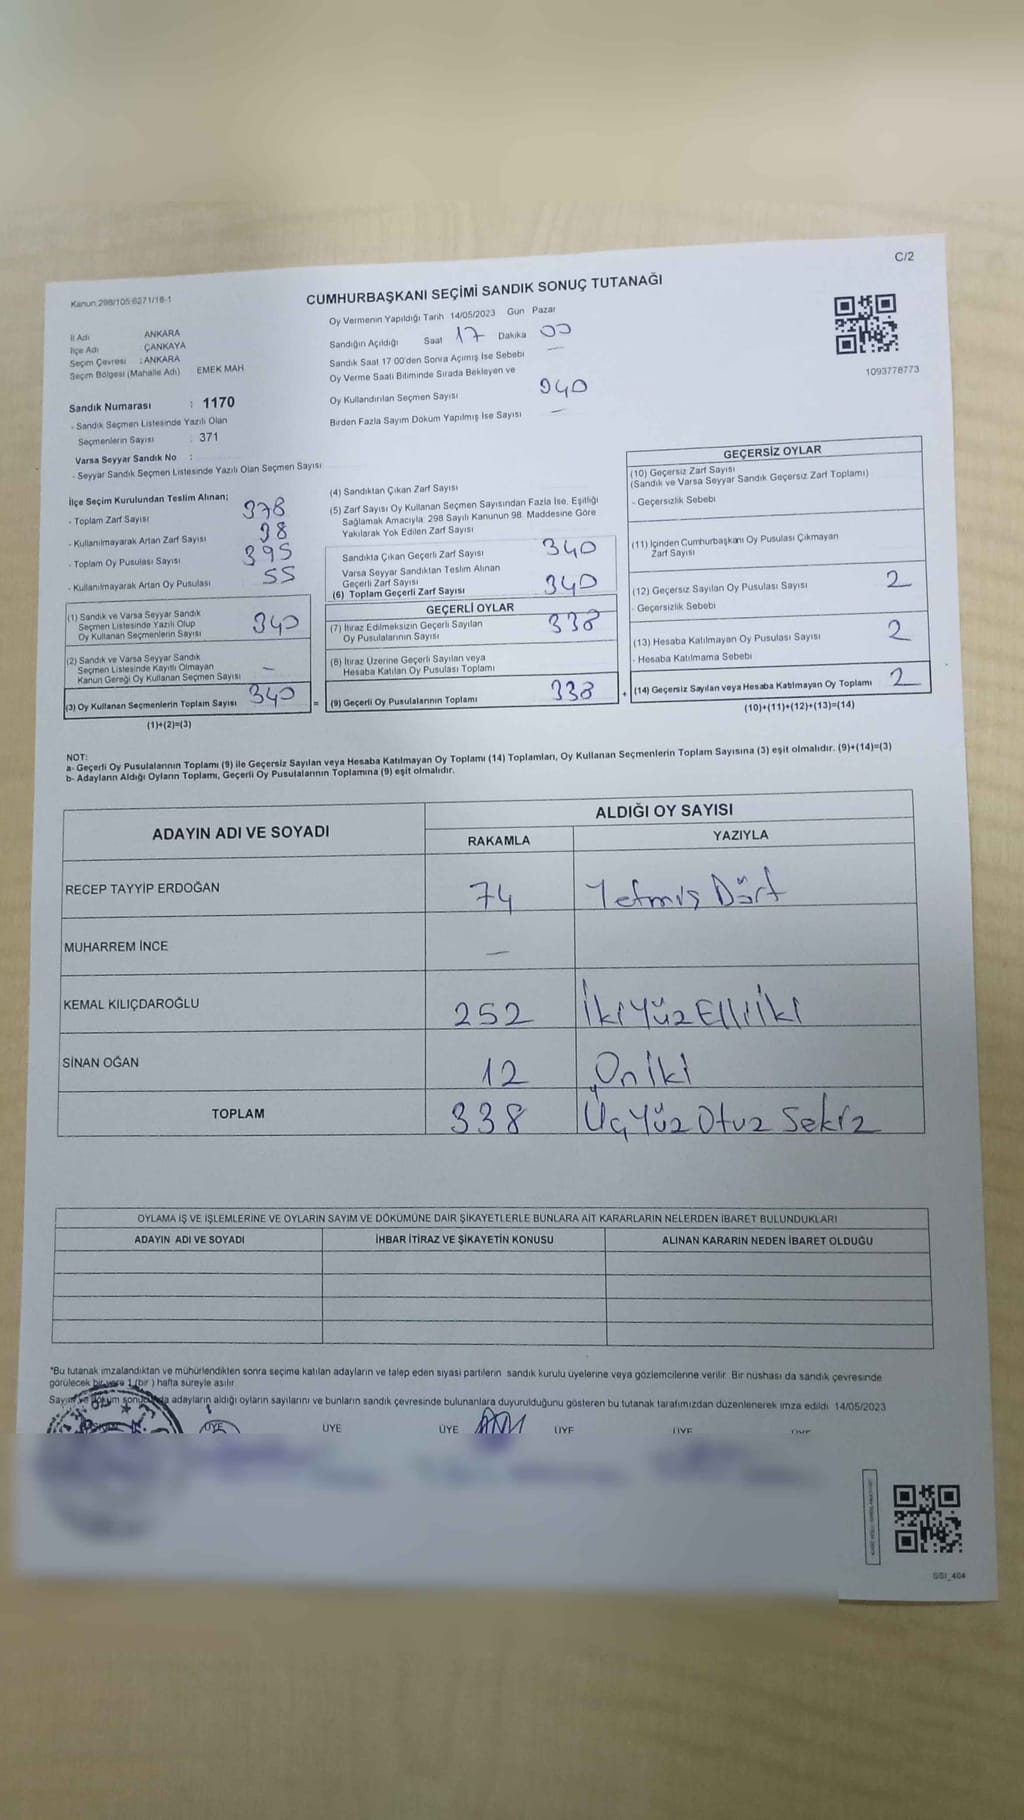 C/2
Kanun 298/105 6271/16-1
CUMHURBAŞKANI SEÇİMİ SANDIK SONUÇ TUTANAĞI
Oy Vermenin Yapıldığı Tarih 14/05/2023 Gün Pazar
İl Adı ANKARA
İlçe Adı ÇANKAYA
Seçim Çevresi : ANKARA
Seçim Bölgesi (Mahalle Adı) EMEK MAH.
Sandık Numarası : 1170
- Sandık Seçmen Listesinde Yazılı Olan
Seçmenlerin Sayısı : 371
Varsa Seyyar Sandık No :
- Seyyar Sandık Seçmen Listesinde Yazılı Olan Seçmen Sayısı
Sandığın Açıldığı Saat 17 Dakika 00
Sandık Saat 17 00'den Sonra Açımış İse Sebebi —
Oy Verme Saati Bitiminde Sırada Bekleyen ve
Oy Kullandırılan Seçmen Sayısı 340
Birden Fazla Sayım Döküm Yapılmış İse Sayısı —
1093778773
İlçe Seçim Kurulundan Teslim Alınan;
- Toplam Zarf Sayısı 378
- Kullanılmayarak Artan Zarf Sayısı 38
- Toplam Oy Pusulası Sayısı 395
- Kullanılmayarak Artan Oy Pusulası 55
(1) Sandık ve Varsa Seyyar Sandık
Seçmen Listesinde Yazılı Olup
Oy Kullanan Seçmenlerin Sayısı 340
(2) Sandık ve Varsa Seyyar Sandık
Seçmen Listesinde Kayıtlı Olmayan
Kanun Gereği Oy Kullanan Seçmen Sayısı —
(3) Oy Kullanan Seçmenlerin Toplam Sayısı 340
(1)+(2)=(3)
(4) Sandıktan Çıkan Zarf Sayısı
(5) Zarf Sayısı Oy Kullanan Seçmen Sayısından Fazla İse, Eşitliği
Sağlamak Amacıyla 298 Sayılı Kanunun 98. Maddesine Göre
Yakılarak Yok Edilen Zarf Sayısı
Sandıkta Çıkan Geçerli Zarf Sayısı 340
Varsa Seyyar Sandıktan Teslim Alınan
Geçerli Zarf Sayısı
(6) Toplam Geçerli Zarf Sayısı 340
GEÇERLİ OYLAR
(7) İtiraz Edilmeksizin Geçerli Sayılan
Oy Pusulalarının Sayısı 338
(8) İtiraz Üzerine Geçerli Sayılan veya
Hesaba Katılan Oy Pusulası Toplamı
= (9) Geçerli Oy Pusulalarının Toplamı 338
GEÇERSİZ OYLAR
(10) Geçersiz Zarf Sayısı
(Sandık ve Varsa Seyyar Sandık Geçersiz Zarf Toplamı)
- Geçersizlik Sebebi
(11) İçinden Cumhurbaşkanı Oy Pusulası Çıkmayan
Zarf Sayısı
(12) Geçersiz Sayılan Oy Pusulası Sayısı 2
- Geçersizlik Sebebi
(13) Hesaba Katılmayan Oy Pusulası Sayısı 2
- Hesaba Katılmama Sebebi
+ (14) Geçersiz Sayılan veya Hesaba Katılmayan Oy Toplamı 2
(10)+(11)+(12)+(13)=(14)
NOT:
a- Geçerli Oy Pusulalarının Toplamı (9) ile Geçersiz Sayılan veya Hesaba Katılmayan Oy Toplamı (14) Toplamları, Oy Kullanan Seçmenlerin Toplam Sayısına (3) eşit olmalıdır. (9)+(14)=(3)
b- Adayların Aldığı Oyların Toplamı, Geçerli Oy Pusulalarının Toplamına (9) eşit olmalıdır.
ADAYIN ADI VE SOYADI ALDIĞI OY SAYISI
RAKAMLA YAZIYLA
RECEP TAYYİP ERDOĞAN 74 Yetmiş Dört
MUHARREM İNCE —
KEMAL KILIÇDAROĞLU 252 İki Yüz Elli İki
SİNAN OĞAN 12 On İki
TOPLAM 338 Üç Yüz Otuz Sekiz
OYLAMA İŞ VE İŞLEMLERİNE VE OYLARIN SAYIM VE DÖKÜMÜNE DAİR ŞİKAYETLERLE BUNLARA AİT KARARLARIN NELERDEN İBARET BULUNDUKLARI
ADAYIN ADI VE SOYADI İHBAR İTİRAZ VE ŞİKAYETİN KONUSU ALINAN KARARIN NEDEN İBARET OLDUĞU
*Bu tutanak imzalandıktan ve mühürlendikten sonra seçime katılan adayların ve talep eden siyasi partilerin sandık kurulu üyelerine veya gözlemcilerine verilir. Bir nüshası da sandık çevresinde
görülecek bir yere 1 (bir) hafta süreyle asılır.
Sayım ve döküm sonucunda adayların aldığı oyların sayılarını ve bunların sandık çevresinde bulunanlara duyurulduğunu gösteren bu tutanak tarafımızdan düzenlenerek imza edildi. 14/05/2023
ÜYE ÜYE ÜYE ÜYE ÜYE
SSI_404